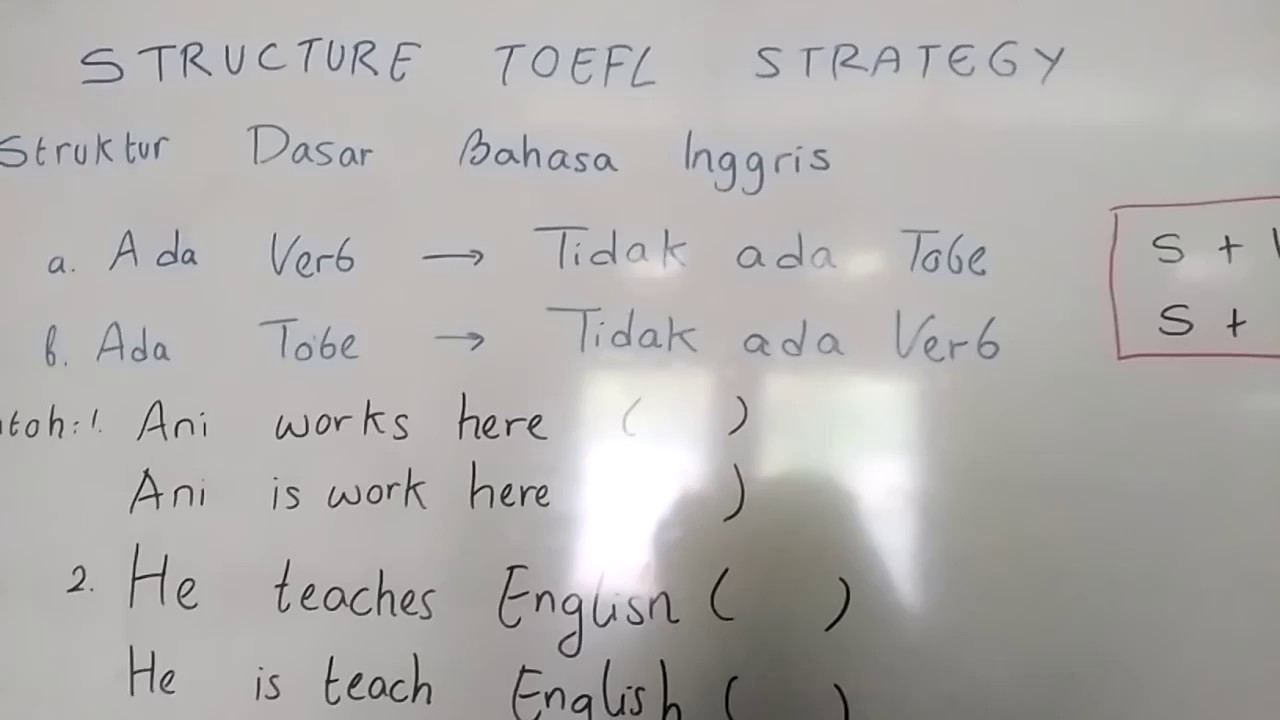 STRUCTURE TOEFL STRATEGY
Struktur Dasar Bahasa Inggris
a. Ada Verb → Tidak ada Tobe
b. Ada Tobe → Tidak ada Verb
S +
S +
toh: 1. Ani works here ( )
Ani is work here )
2. He teaches English ( )
He is teach English ( )